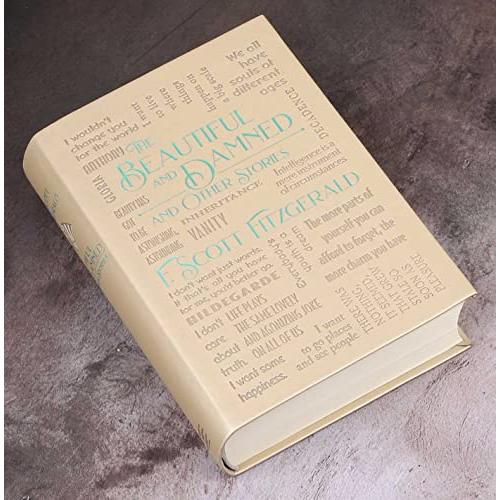 I wouldn't
change you
for the world
I want
to live
where
things
happen on
a big scale
We all
have
souls of
different
ages
ANTHONY
GLORIA
DECADENCE
THE
BEAUTIFUL
AND DAMNED
AND OTHER STORIES
BEAUTIFUL
GOT
TO BE
ASTONISHING,
ASTONISHING
INHERITANCE
VANITY
Intelligence is a
mere instrument
of circumstances
F. SCOTT FITZGERALD
I don't want just words.
If that's all you have
for me, you'd better go.
HILDEGARDE
Everybody's
youth is a
dream
The more parts of
yourself you can
afford to forget, the
more charm you have
I don't
care
about
truth.
I want some
happiness.
LIFE PLAYS
THE SAME LOVELY
AND AGONIZING JOKE
ON ALL OF US
I want
to go places
and see people.
THERE WAS
NOTHING,
IT SEEMED,
THAT GREW
SO
SOON AS
PLEASURE